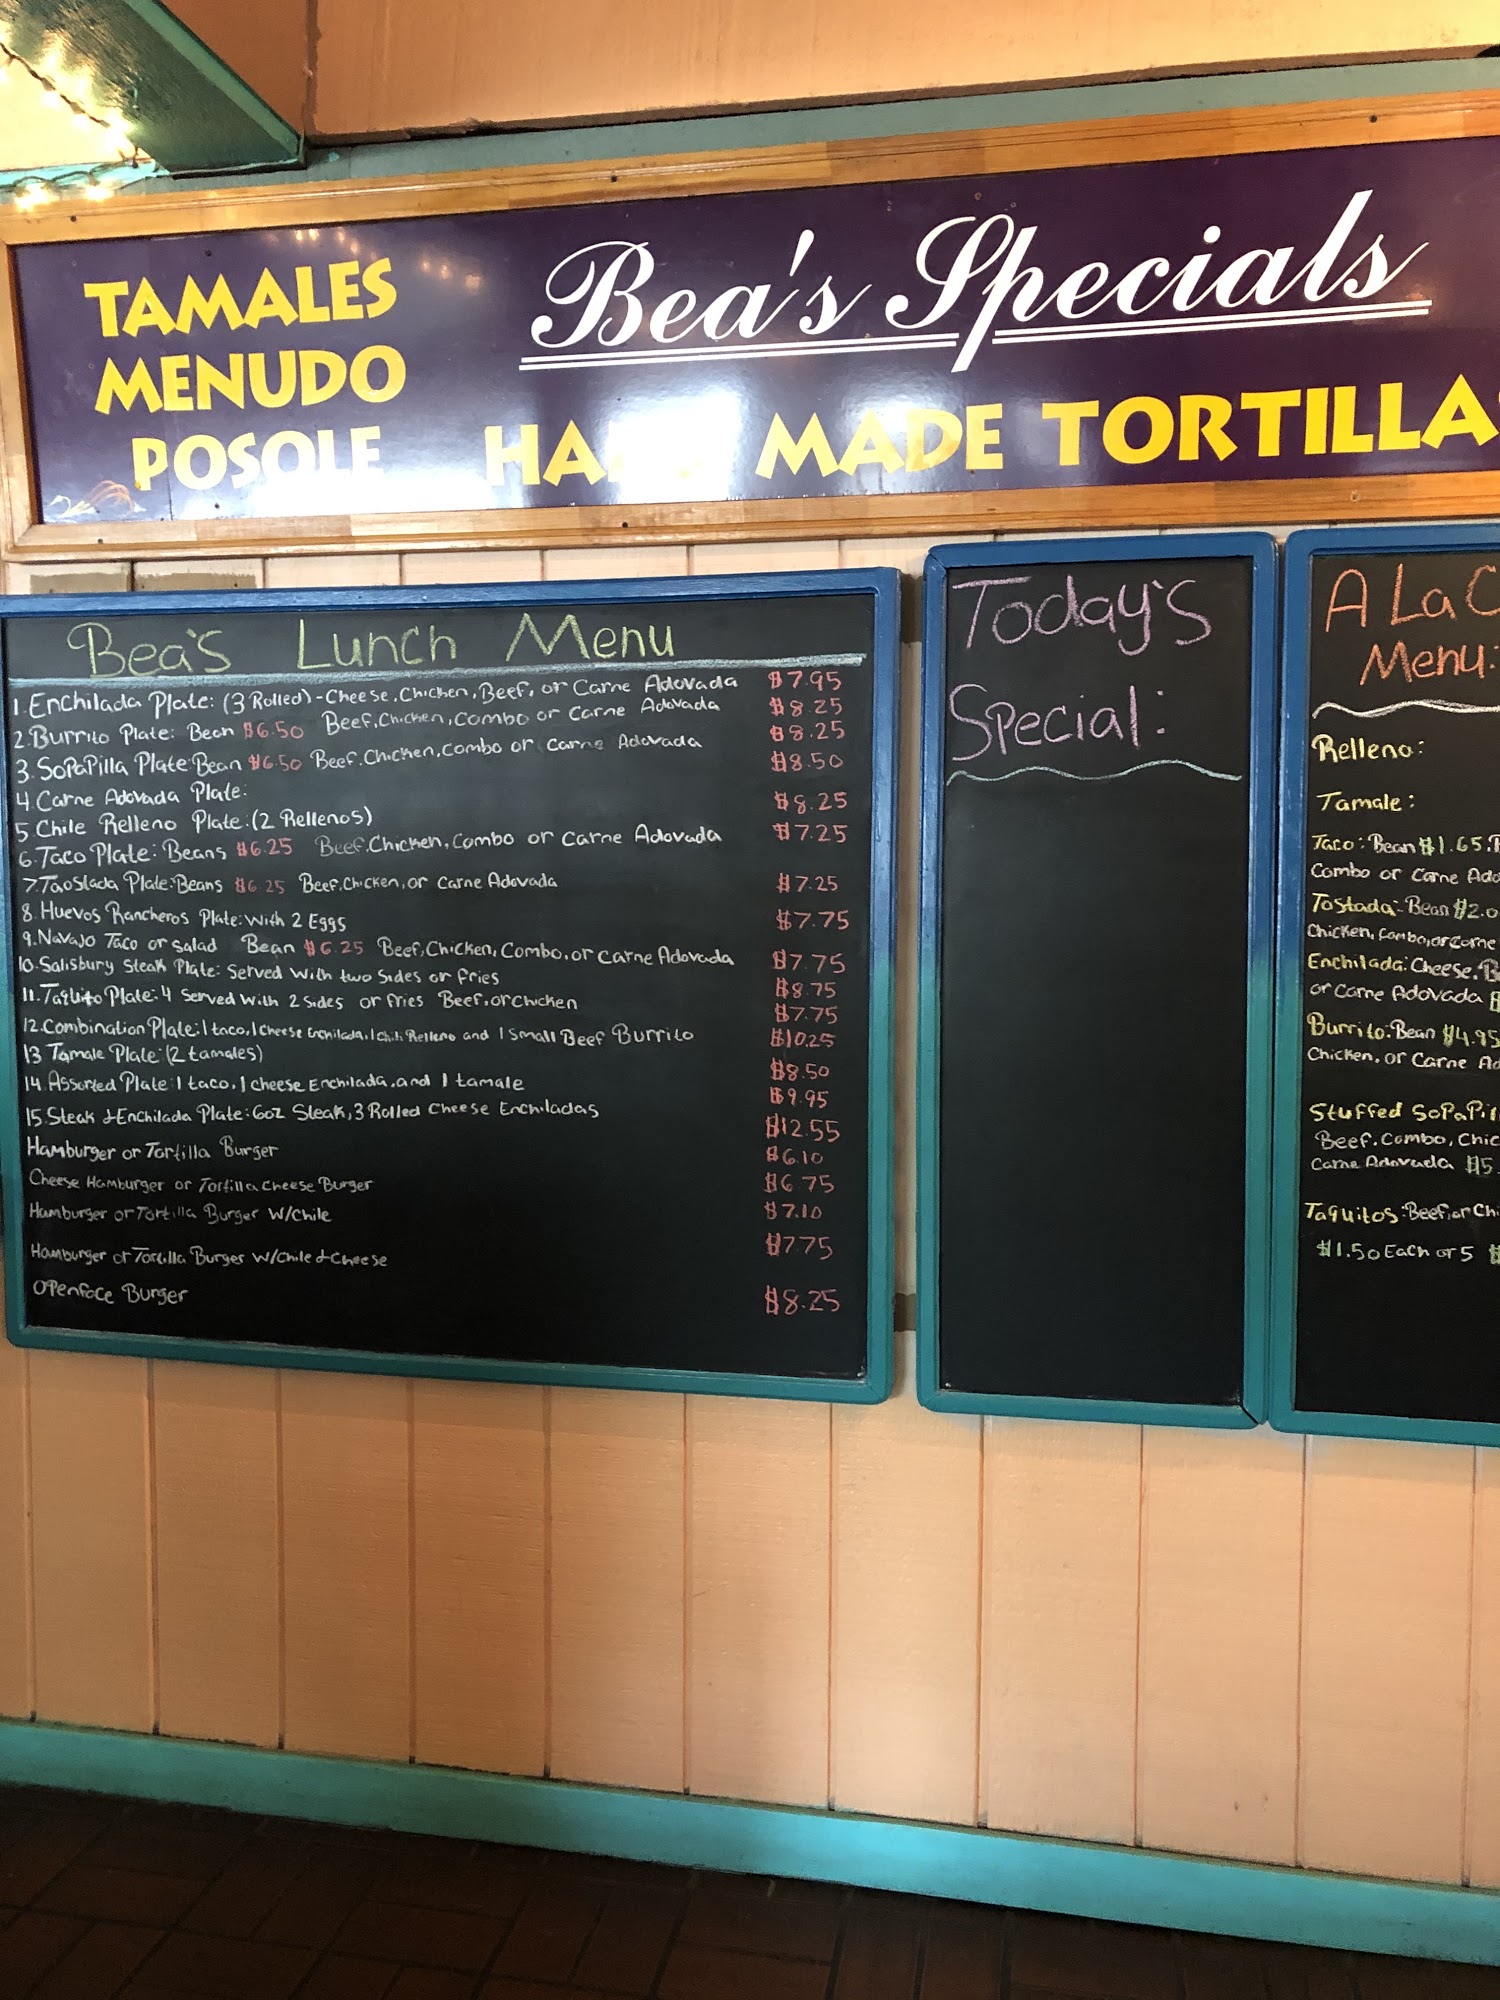 TAMALES
MENUDO
POSOLE
Bea's Specials
MADE TORTILLA
Bea's Lunch Menu
1. Enchilada Plate: (3 Rolled) - Cheese, Chicken, Beef, or Carne Adovada $7.95
2. Burrito Plate: Bean $6.50 Beef, Chicken, Combo or Carne Adovada $8.25
3. SoPaPilla Plate: Bean $6.50 Beef, Chicken, Combo or Carne Adovada $8.25
4. Carne Adovada Plate: $8.50
5 Chile Relleno Plate: (2 Rellenos) $8.25
6. Taco Plate: Beans $6.25 Beef, Chicken, Combo or Carne Adovada $7.25
7. Taostada Plate: Beans $6.25 Beef, Chicken, or Carne Adovada $7.25
8. Huevos Rancheros Plate: with 2 Eggs $7.75
9. Navajo Taco or Salad Bean $6.25 Beef, Chicken, Combo, or Carne Adovada $7.75
10. Salisbury Steak Plate: Served with two Sides or fries $8.75
11. Taquito Plate: 4 Served with 2 sides or fries Beef, or Chicken $7.75
12. Combination Plate: 1 taco, 1 Cheese Enchilada, 1 Chili Relleno and 1 Small Beef Burrito $10.25
13 Tamale Plate: (2 tamales) $8.50
14. Assorted Plate: 1 taco, 1 cheese Enchilada, and 1 tamale $9.95
15. Steak & Enchilada Plate: 6oz Steak, 3 Rolled Cheese Enchiladas $12.55
Hamburger or Tortilla Burger $6.10
Cheese Hamburger or Tortilla Cheese Burger $6.75
Hamburger or Tortilla Burger W/Chile $7.10
Hamburger or Tortilla Burger W/Chile & Cheese $7.75
Openface Burger $8.25
Today's
Special:
A La C
Menu:
Relleno:
Tamale:
Taco: Bean $1.65.
Combo or Carne Ado
Tostada: Bean $2.0
Chicken, Combo, or Carne
Enchilada: Cheese, B
or Carne Adovada $
Burrito: Bean $4.95
Chicken, or Carne Ad
Stuffed SoPaPil
Beef, Combo, Chic
Carne Adovada $5.
Taquitos: Beef, or Chi
$1.50 Each or 5 $